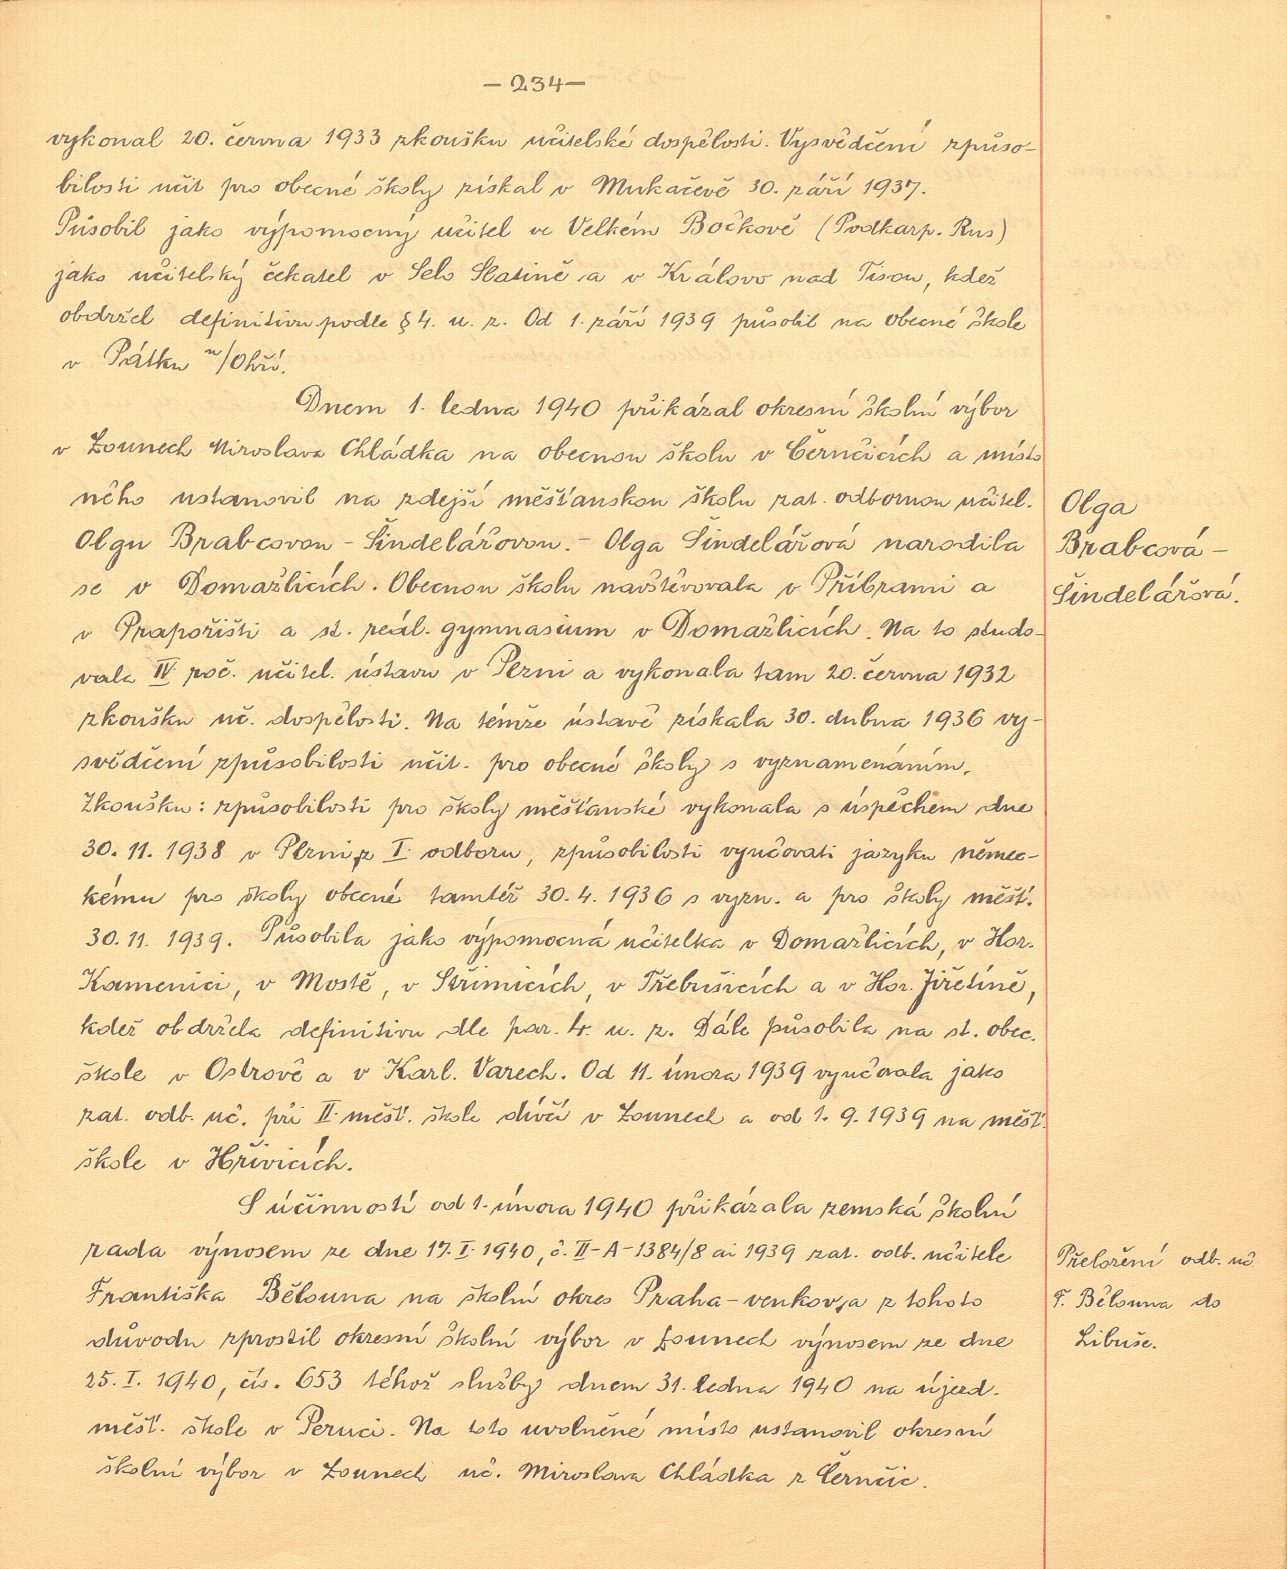 — 234 —
vykonal 20. června 1933 zkoušku učitelské dospělosti. Vysvědčení způso-
bilosti učit pro obecné školy získal v Mukačevě 30. září 1937.
Působil jako výpomocný učitel ve Velkém Bočkově (Podkarp. Rus)
jako učitelský čekatel v Selo Slatině a v Královo nad Tisou, kdež
obdržel definitivu podle § 4. u. z. Od 1. září 1939 působil na obecné škole
v Pátku n/Ohří.
Dnem 1. ledna 1940 přikázal okresní školní výbor
v Lounech Miroslava Chládka na obecnou školu v Černčicích a místo
něho ustanovil na zdejší měšťanskou školu zat. odbornou učitel.
Olgu Brabcovou - Šindelářovou. - Olga Šindelářová narodila
se v Domažlicích. Obecnou školu navštěvovala v Příbrami a
v Prapořišti a st. reál. gymnasium v Domažlicích. Na to studo-
vala IV roč. učitel. ústavu v Plzni a vykonala tam 20. června 1932
zkoušku uč. dospělosti. Na témže ústavě získala 30. dubna 1936 vy-
svědčení způsobilosti učit. pro obecné školy s vyznamenáním.
Zkoušku: způsobilosti pro školy měšťanské vykonala s úspěchem dne
30. 11. 1938 v Plzni z I. odboru, způsobilosti vyučovati jazyku němec-
kému pro školy obecné tamtéž 30. 4. 1936 s vyzn. a pro školy měšť.
30. 11. 1939. Působila jako výpomocná učitelka v Domažlicích, v Hor.
Kamenici, v Mostě, v Střimicích, v Třebušicích a v Hor. Jiřetíně,
kdež obdržela definitivu dle par. 4. u. z. Dále působila na st. obec.
škole v Ostrově a v Karl. Varech. Od 11. února 1939 vyučovala jako
zat. odb. uč. při II. měšť. škole dívčí v Lounech a od 1. 9. 1939 na měšť.
škole v Hřivicích.
S účinností od 1. února 1940 přikázala zemská školní
rada výnosem ze dne 17. I. 1940, č. II-A-1384/8 ai 1939 zat. odb. učitele
Františka Bělouna na školní okres Praha-venkov, a z tohoto
důvodu zprostil okresní školní výbor v Lounech výnosem ze dne
25. I. 1940, čís. 653 téhož služby dnem 31. ledna 1940 na újezd.
měšť. škole v Peruci. Na toto uvolněné místo ustanovil okresní
školní výbor v Lounech uč. Miroslava Chládka z Černčic.
Olga
Brabcová -
Šindelářová.
Přeložení odb. uč.
F. Bělouna do
Libuše.